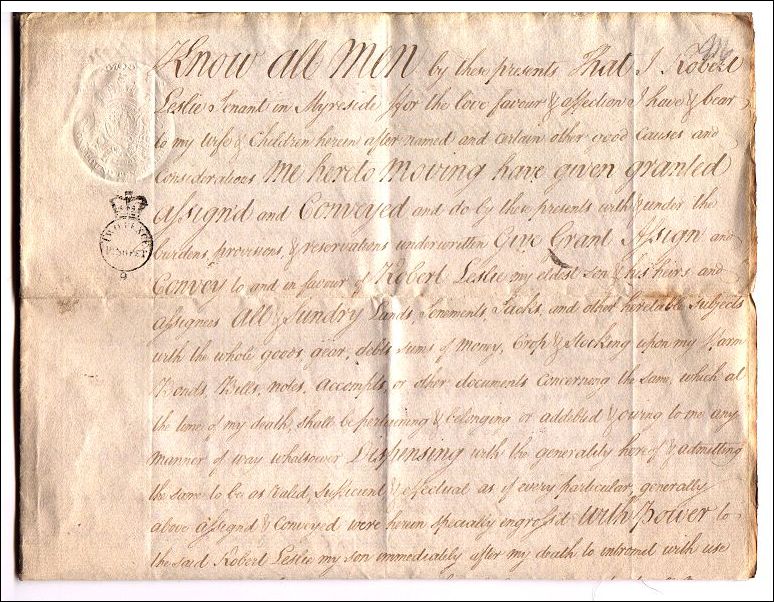 Know all Men by these presents That I Robert
Leslie Tenant in Myreside ffor the love favour & affection I have & bear
to my wife & Children herein after named and certain other good Causes and
Considerations me hereto moving have given granted
assign'd and Conveyed and do by these presents with & under the
burdens, provisions, & reservations underwritten Give Grant Assign and
Convey to and in favour of Robert Leslie my eldest son & his heirs and
assignees All & Sundry Lands, Tenements, Tacks, and other heretable subjects
with the whole goods, gear, debts sums of money, Crop & Stocking upon my Farm
Bonds, Bills, notes, accompts, or other documents concerning the same, which at
the time of my death, shall be pertaining & belonging or addebted & owing to me, any
manner of way whatsoever Dispensing with the generality hereof & admitting
the same to be as valid, sufficient & effectual as if every particular, generally
above assign'd & Conveyed were herein specially engross'd With Power to
the said Robert Leslie my son immediately after my death to intromet with use
TWO PENCE